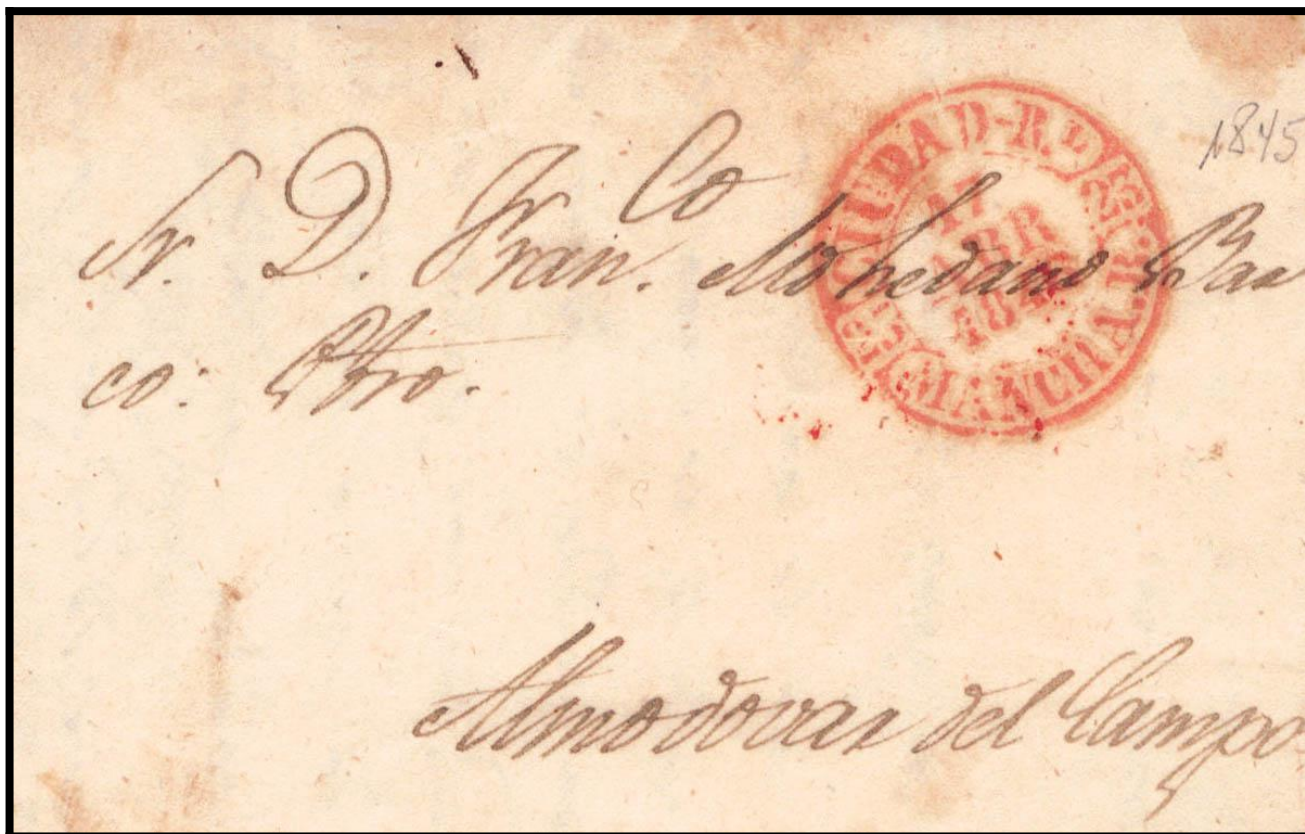 1845
CIUDAD-R.L
17
ABR
MANCHA
Sr. D. Fran.co Mohedano Bas
co: Pbro.
Almodovar del Campo